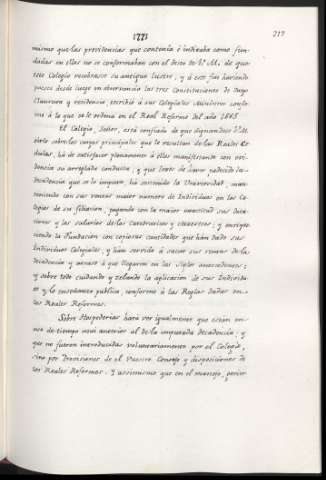 1771
219
mismo que las providencias que contenía é indicaba como fun-
dadas en ellas no se conformaban con el deseo de V. M. de que
ese Colegio recobrase su antiguo lustre; y á este fin haciendo
poner desde luego en observancia las tres Constituciones de Pago
Clausura y residencia, escribió á sus Colegiales Ministros confor-
me á lo que se le ordena en el Real Reforma del año 1665
El Colegio, Señor, está confiado de que dignandose V. M.
oirle sobre los cargos principales que le resultan de las Reales Ce-
dulas, há de satisfacer plenamente á ellos manifestando con evi-
dencia su arreglada conducta, y que lexos de haver padecido la
decadencia que se le imputa, há socorrido la Universidad, man-
teniendo con sus rentas maior numero de Individuos en los Co-
legios de su filiacion, pagando con la maior exactitud sus Due-
ciones y los salarios de los Cathedraticos y Maestros; y enrique-
ciendo la Fundacion con copiosas cantidades que hán dado sus
Individuos Colegiales, y hán servido á sacar sus rentas de la
decadencia y atraso á que llegaron en los Siglos antecedentes;
y sobre todo cuidando y zelando la aplicacion de sus Individu-
os y la enseñanza publica, conforme á las Reglas dadas en
las Reales Reformas.
Sobre Hospederias hará ver igualmente que están en ser
de tiempo mui anterior al de la imputada decadencia; y
que no fueron introducidas voluntariamente por el Colegio,
sino por Provisiones de el Vuestro Consejo y disposiciones de
los Reales Reformas. Y assimismo que en el manejo, perci-